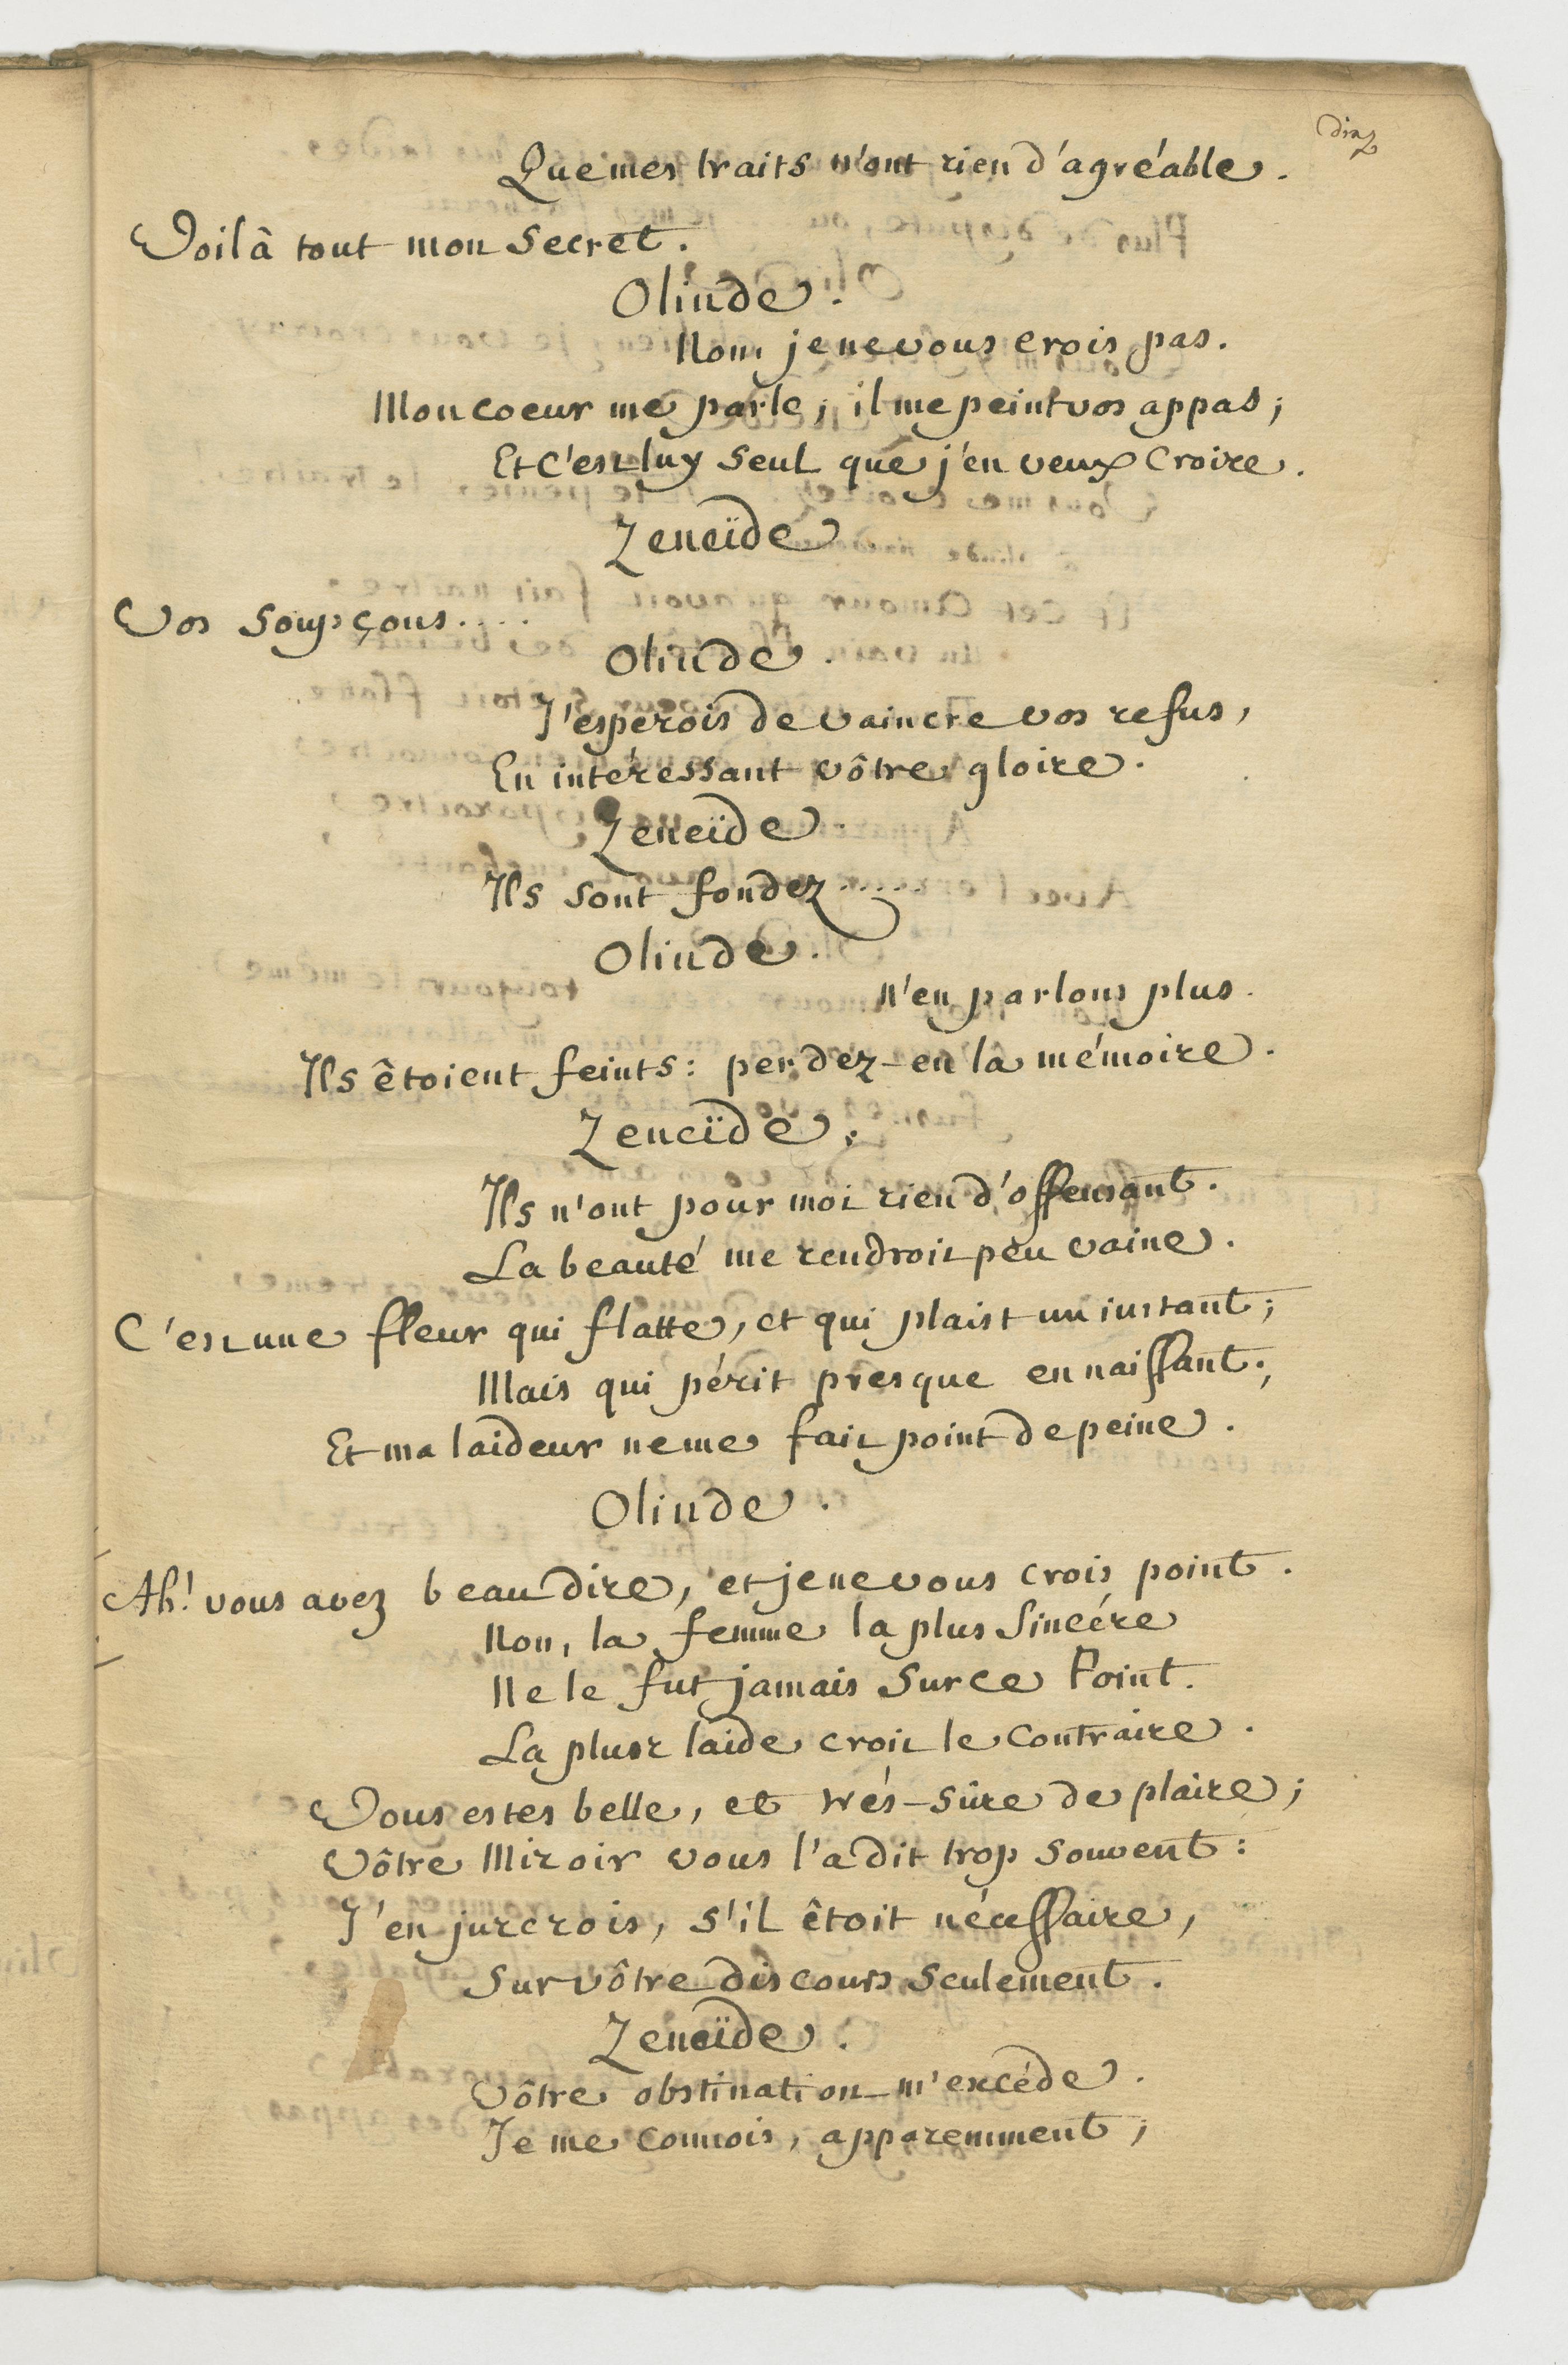 dix
Que mes traits n'ont rien d'agréable.
Voilà tout mon secret.
Olinde.
Non, je ne vous crois pas.
Mon coeur me parle; il me peint vos appas;
Et c'est luy seul que j'en veux croire.
Zeneïde
Vos soupçons....
Olinde.
J'esperois de vaincre vos refus,
En intéressant vôtre gloire.
Zeneïde.
Ils sont fondez.....
Olinde.
N'en parlons plus.
Ils êtoient feints: perdez-en la mémoire.
Zeneïde.
Ils n'ont pour moi rien d'offensant.
La beauté me rendroit peu vaine.
C'est une fleur qui flatte, et qui plaist un instant;
Mais qui périt presque en naissant;
Et ma laideur ne me fait point de peine.
Olinde.
Ah! vous avez beau dire, et je ne vous crois point.
Non, la femme la plus sincére
Ne le fut jamais sur ce Point.
La plus laide croit le contraire.
Vous estes belle, et trés-sûre de plaire;
Vôtre Miroir vous l'a dit trop souvent:
J'en jurerois, s'il êtoit nécessaire,
Sur vôtre discours seulement.
Zeneïde.
Vôtre obstination m'excéde.
Je me connois, apparemment;